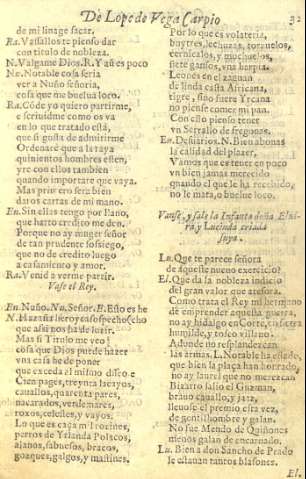 De Lope de Vega Carpio 32
de mi linage sacar.
Ra. Vassallos te pienso dar
con titulo de nobleza.
N. Valgame Dios. R. Y aũ es poco
Nu. Notable cosa seria
ver a Nuño señoria,
cosa que me buelua loco.
Ra. Cõde yo quiero partirme,
e scriuidme como os va
en lo que tratado està,
que si gusta de admitirme
Ordenarè que a leraya
quinientos hombres esten,
yre con ellos tambien
quando importare que vaya.
Mas primero serà bien
datos cartas de mi mano.
En. Sin ellas tengo por llano,
que harto credito me den.
Porque no ay muger señor
de tan prudente sossiego,
que no de credito luego
a casamiento y amor.
Ra. Venid a verme partir.
Vase el Rey.
En. Nuño. Nu. Señor. E. Esto es he
N. Hazaña heroy en sospecho cho
que assi nos ha de luzir.
Mas si Titulo me veo?
cosa que Dios puede hazer
mi casa he de poner
que exceda al mismo
Cien pages, treynta lacayos,
cauallos, quarenta pares,
nacarados, verdemares,
roxos, celestes, y vayos.
Lo que es caça mil rocines,
perros de Yrlanda Polacos,
alanos, sabuesos, bracos,
gozques, galgos, y mastines.
Por lo que es volateria,
buytres, lechuzas, toruuelos,
cernicalos, y mochuelos,
siete gansos, vna harpia.
Leones en el zaguan
de linda casta Africana,
tigre, sino fuere Yrcana
no piense comer mi pan.
Con esto pienso tener
vn Serrallo de fregonas.
En. Desuarios. N. Bien abonas
la calidad del plazer,
Vamos que es tener en poco
vn bien jamas merecido
quando el que le ha recebido,
no le mata, o buelue loco.
Vanse, y sale la Infanta doña Elui-
ra y Lucinda criada
suya.
Lu. Que te parece señora
de aqueste nueuo exercicio?
El. Que da la nobleza indicio
del gran valor que atesora.
Como trata el Rey mi hermano
de emprender aquesta guerra,
no ay hidalgo en Corte, en tierra
humilde, y tosco villano
Adonde no resplandezcan
las armas. L. Notable ha estado,
que bien la plaça han honrado,
no ay laurel que no merezcan
Bizarro salio el Guzman,
brauo cauallo, y jaez,
lleuose el premio esta vez,
de gentilhombre y galan.
No fue Mendo de Quiñones
menos galan de encarnado.
Lu. Bien a don Sancho de Prado
le estauan tantos blasones.
El.